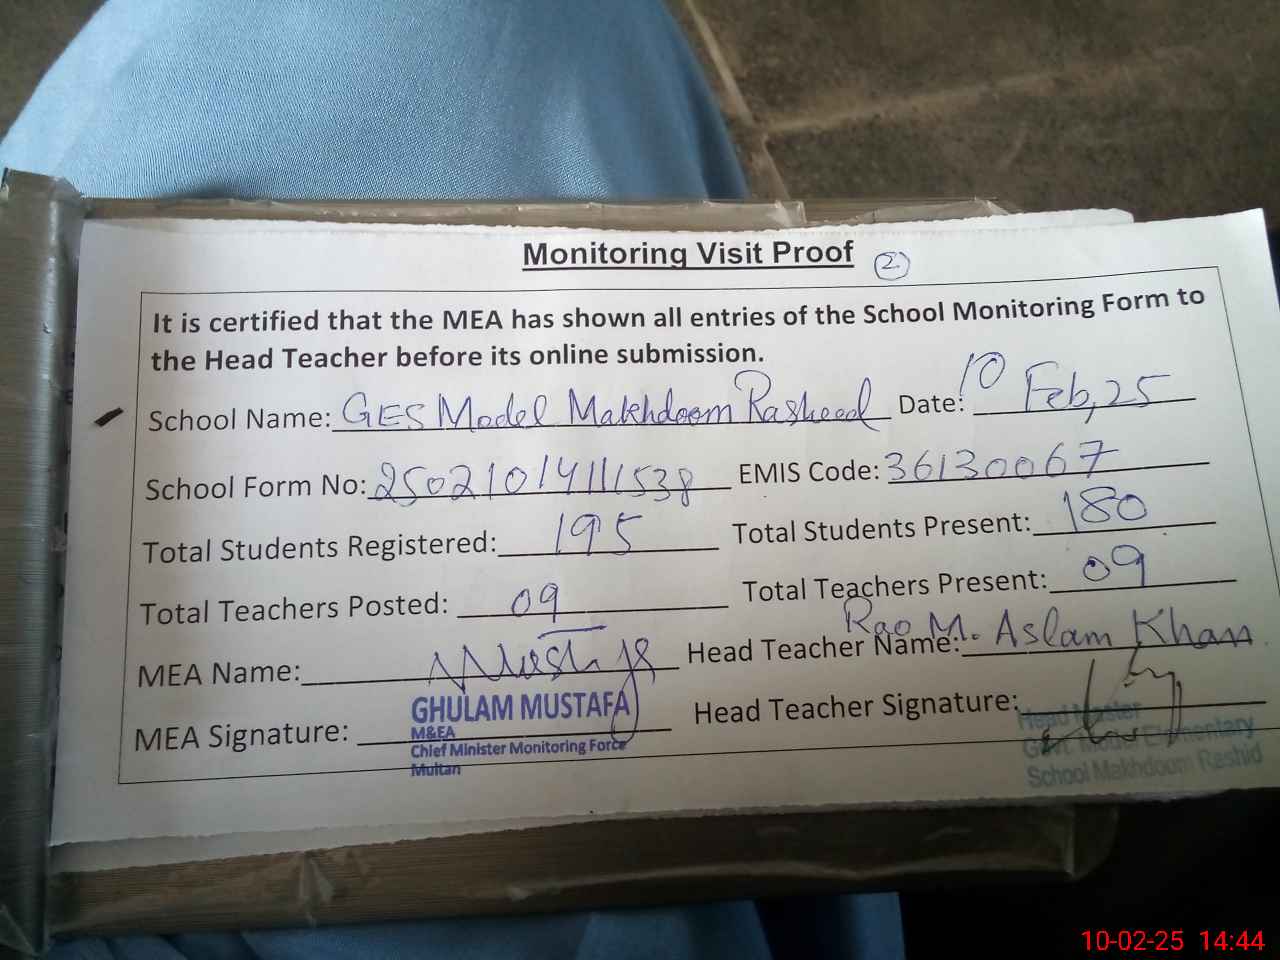 Monitoring Visit Proof
2
It is certified that the MEA has shown all entries of the School Monitoring Form to
the Head Teacher before its online submission.
School Name: GES Model Makhdoom Rasheed Date: 10 Feb, 25
School Form No: 25021014111538 EMIS Code: 36130067
Total Students Registered: 195 Total Students Present: 180
Total Teachers Posted: 09 Total Teachers Present: 09
MEA Name: Head Teacher Name: Rao M. Aslam Khan
MEA Signature: Head Teacher Signature:
GHULAM MUSTAFA
M&EA
Chief Minister Monitoring Force
Multan
Head Master
Govt. Model Elementary
School Makhdoom Rashid
10-02-25 14:44